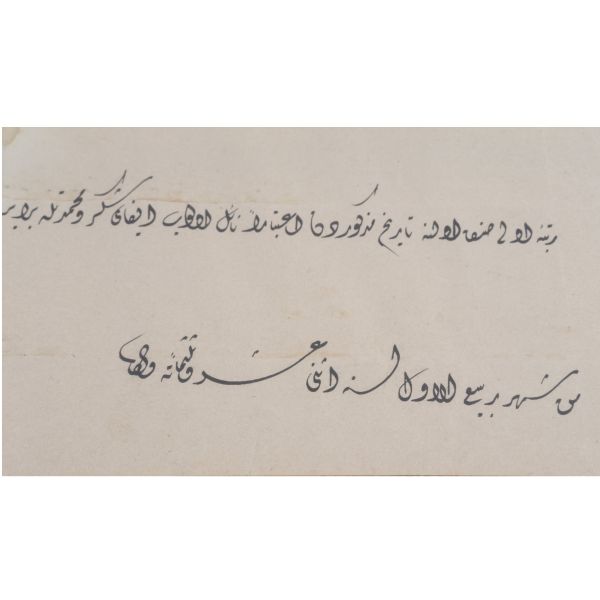 رتبۀ اولى صنف اولنه تاريخ مذكوردن اعتباراً نائل اولوب ايفاى شكر و محمدتله برابر
من شهر ربيع الاول لسنه اثنى عشر و ثلثمائه و الف